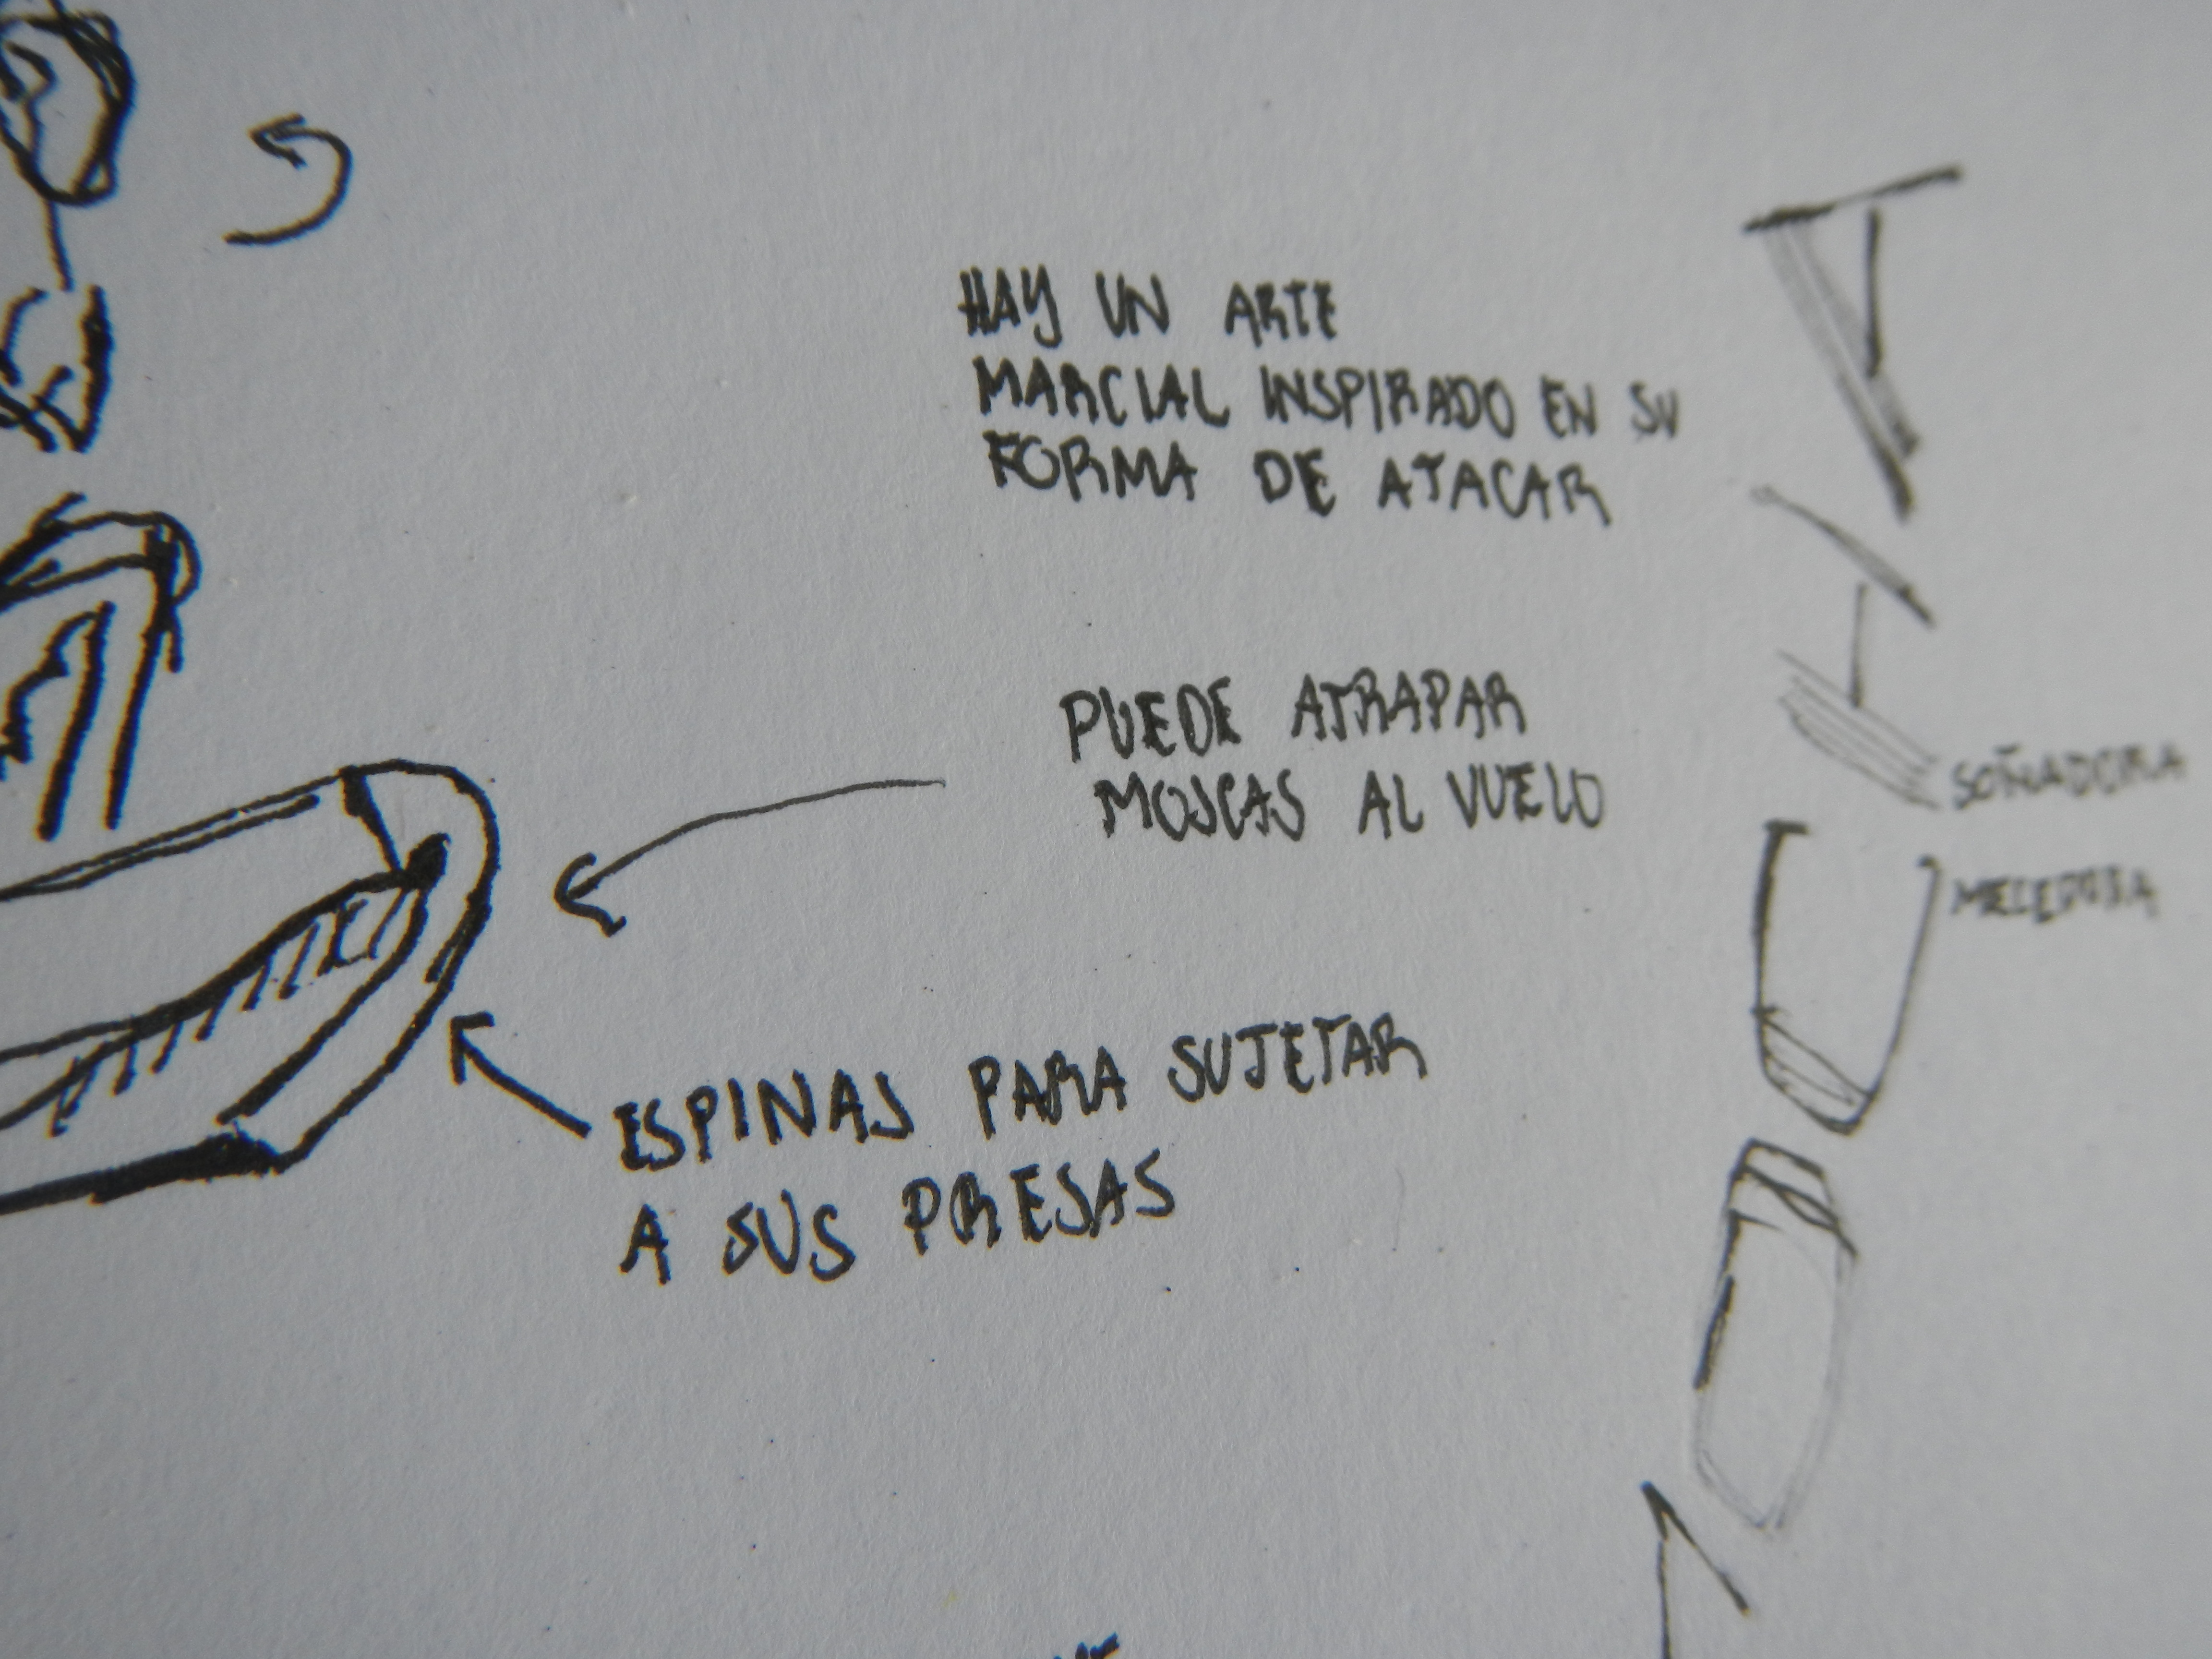 HAY UN ARTE
MARCIAL INSPIRADO EN SU
FORMA DE ATACAR
PUEDE ATRAPAR
MOSCAS AL VUELO
SOÑADORA
MECEDORA
ESPINAS PARA SUJETAR
A SUS PRESAS